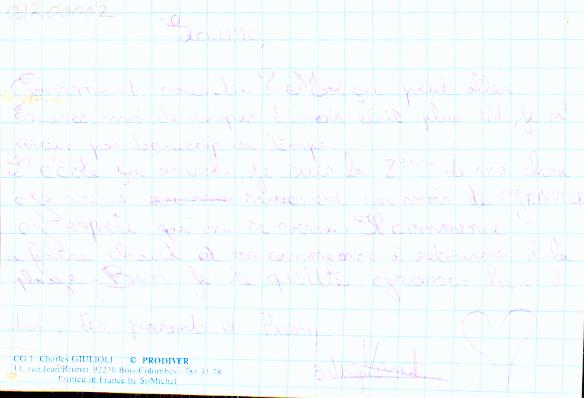 09200002
Salut,
Comment vas-tu? Moi ça peut aller
Excuses moi de ne pas t'avoir écrit plus tôt, je n'
avais pas beaucoup de temps
L'école ça marche, je suis la 2ème de ma classe
Je viens surement au mois de
J'espère qu'on se verra. Il commence
a faire chaud et on commence a retourner à la
plage. Bon je te quitte grosses bises à
toi, tes parents et
CG 1 Charles GIULIOLI © PRODIVER
11, rue Jean Brunet 92270 Bois-Colombes - 785.31.78
Printed in France by St-Michel